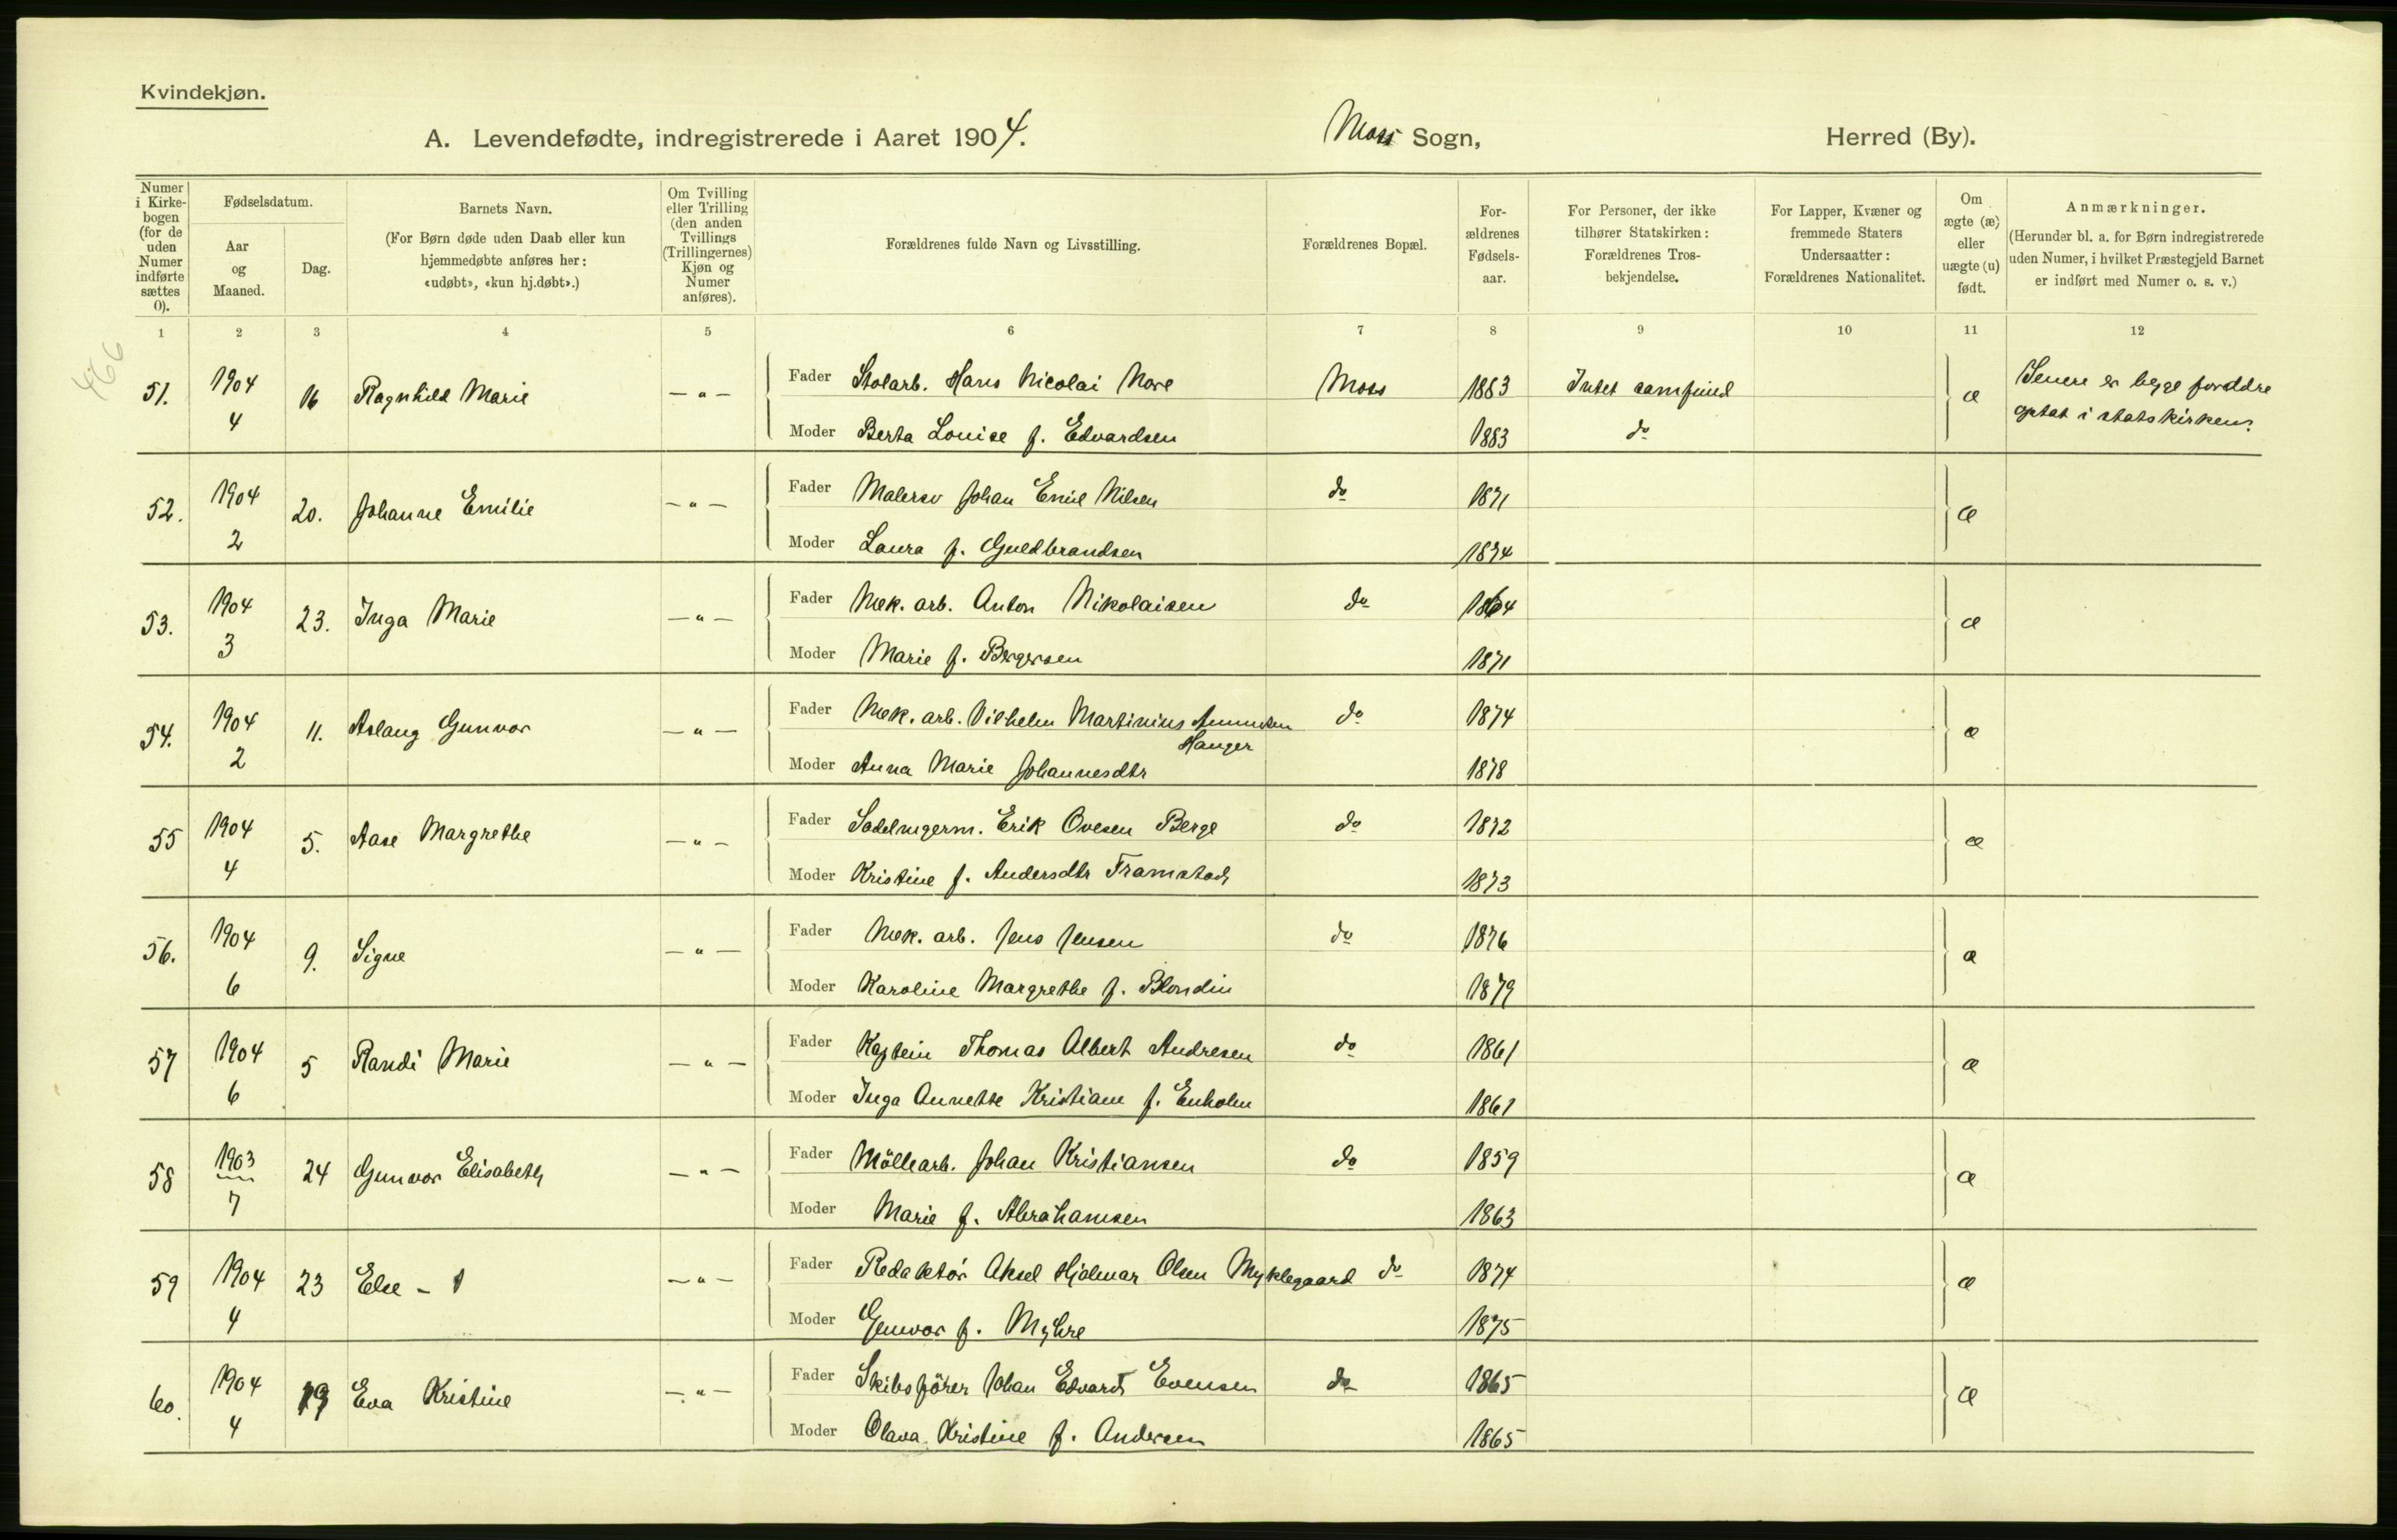 Kvindekjøn.
A. Levendefødte, indregistrerede i Aaret 1904. Moss Sogn, Herred (By).
Numer i Kirkebogen (for de uden Numer indførte sættes 0).
Fødselsdatum.
Aar og Maaned.
Dag.
Barnets Navn.
(For Børn døde uden Daab eller kun hjemmedøbte anføres her: «udøbt», «kun hj.døbt».)
Om Tvilling eller Trilling (den anden Tvillings (Trillingernes) Kjøn og Numer anføres).
Forældrenes fulde Navn og Livsstilling.
Forældrenes Bopæl.
Forældrenes Fødselsaar.
For Personer, der ikke tilhører Statskirken: Forældrenes Trosbekjendelse.
For Lapper, Kvæner og fremmede Staters Undersaatter: Forældrenes Nationalitet.
Om ægte (æ) eller uægte (u) født.
Anmærkninger.
(Herunder bl. a. for Børn indregistrerede uden Numer, i hvilket Præstegjeld Barnet er indført med Numer o. s. v.)
1 2 3 4 5 6 7 8 9 10 11 12
466
51. 1904 4 16 Ragnhild Marie — " —
Fader Stolarb. Hans Nicolai Nore Moss 1883 Intet samfund æ Senere er begge forældre
Moder Berta Louise f. Edvardsen 1883 do optat i statskirken.
52. 1904 2 20. Johanne Emilie — " —
Fader Malersv Johan Emil Nilsen do 1871 æ
Moder Laura f. Guldbrandsen 1874
53. 1904 3 23. Inga Marie — " —
Fader Mek. arb. Anton Nikolaisen do 1864 æ
Moder Marie f. Bergersen 1871
54. 1904 2 11. Aslaug Gunvor — " —
Fader Mek. arb. Vilhelm Martinius Amundsen Hauger do 1874 æ
Moder Anna Marie Johannesdtr 1878
55 1904 4 5. Aase Margrethe — " —
Fader Sadelmagerm. Erik Ovesen Berge do 1872 æ
Moder Kristine f. Andersdtr Tramstad 1873
56. 1904 6 9. Signe — " —
Fader Mek. arb. Jens Jensen do 1876 æ
Moder Karoline Margrethe f. Blondin 1879
57 1904 6 5 Randi Marie — " —
Fader Kaptein Thomas Albert Andresen do 1861 æ
Moder Inga Annette Kristiane f. Enholm 1861
58 1903 7 24 Gunvor Elisabeth — " —
Fader Möllearb. Johan Kristiansen do 1859 æ
Moder Marie f. Abrahamsen 1863
59 1904 4 23 Else — " —
Fader Redaktör Aksel Hjalmar Olsen Myklegaard do 1874 æ
Moder Gunvor f. Myhre 1875
60. 1904 4 19 Eva Kristine — " —
Fader Skibsförer Johan Edvard Evensen do 1865 æ
Moder Olava Kristine f. Andersen 1865